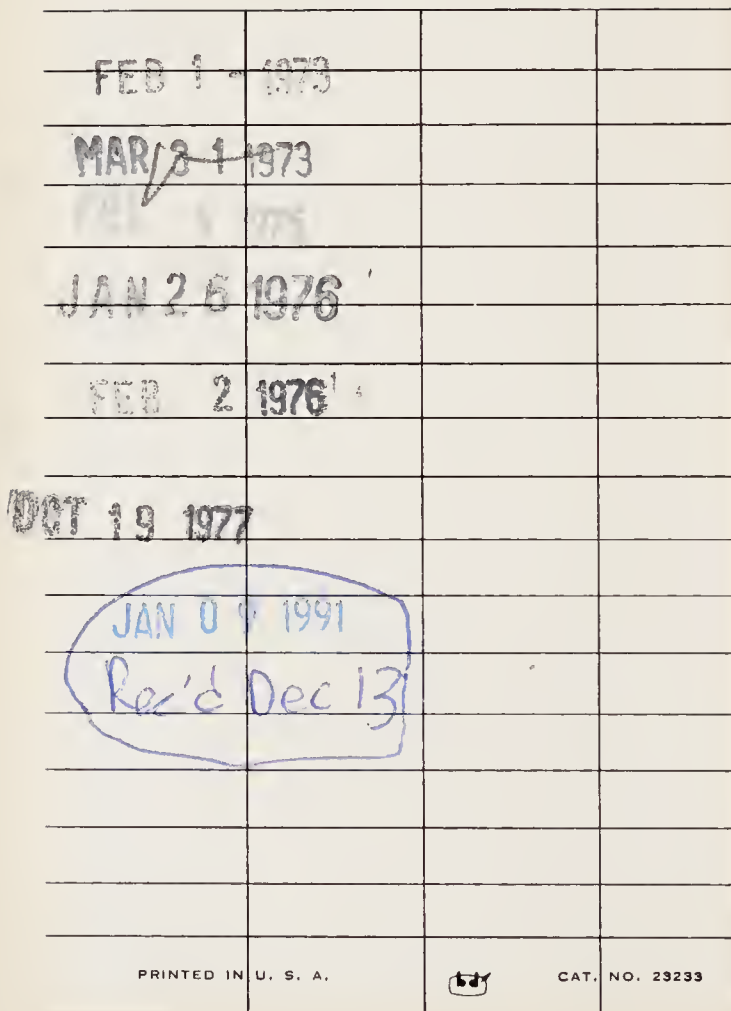 FEB 1 - 1973
MAR 31 1973
JAN 26 1976
FEB 2 1976
OCT 19 1977
JAN 09 1991
Rec'd Dec 13
PRINTED IN U. S. A.
CAT. NO. 23233